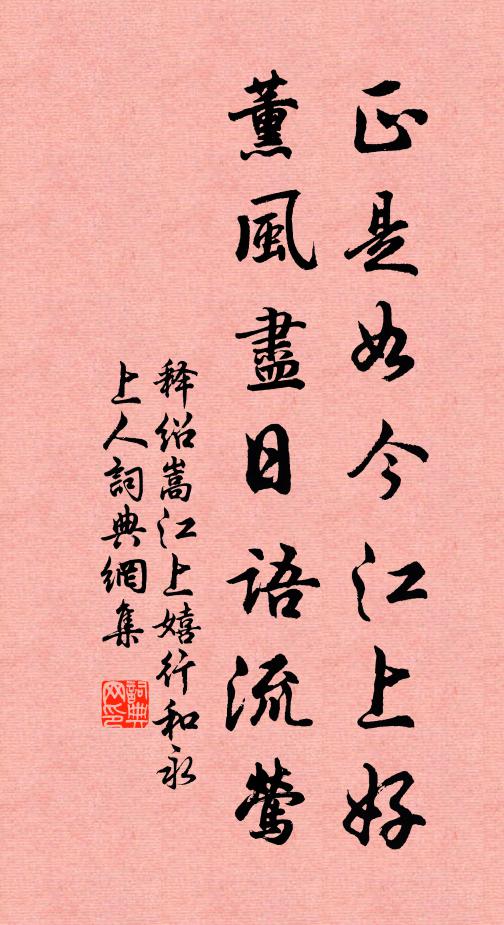 正是如今江上好
薰風盡日語流莺
释绍嵩江上嬉行和永
上人詞典網集
詞典网印